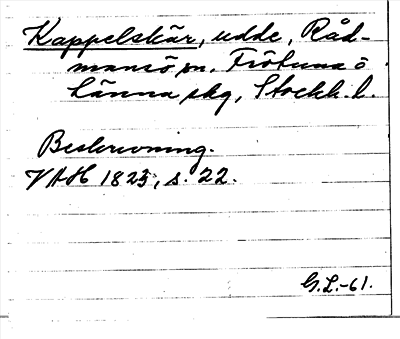 Kappelskär, udde, Råd-
mansö sn. Frötuna o
Länna skg, Stockh. l.
Beskrivning.
VAH 1825, s. 22.
G.L.-61.